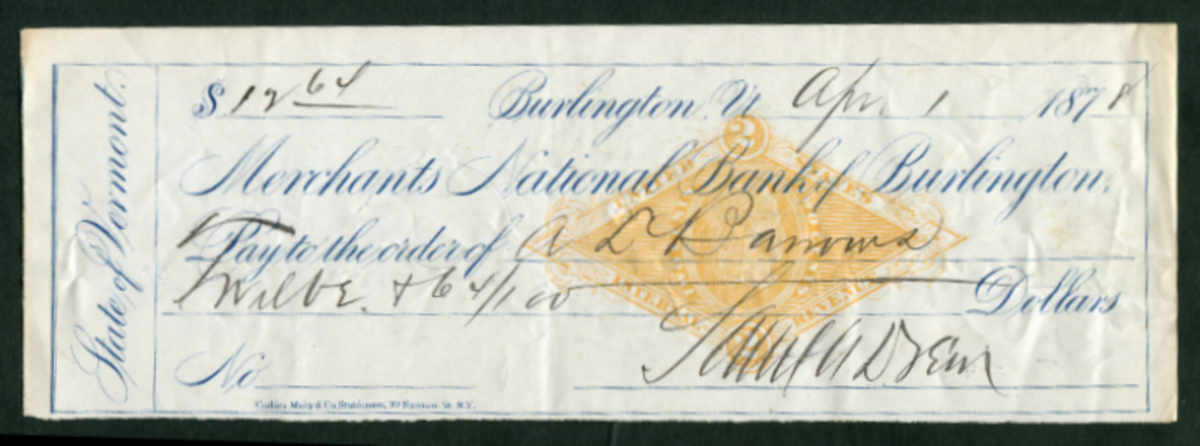 State of Vermont.
$ 12 64 Burlington, Vt. Apr. 1 1878
Merchants National Bank of Burlington,
Pay to the order of A D Barrows
Twelve & 64/100 Dollars
No
2
UNITED STATES
INTERNAL REVENUE